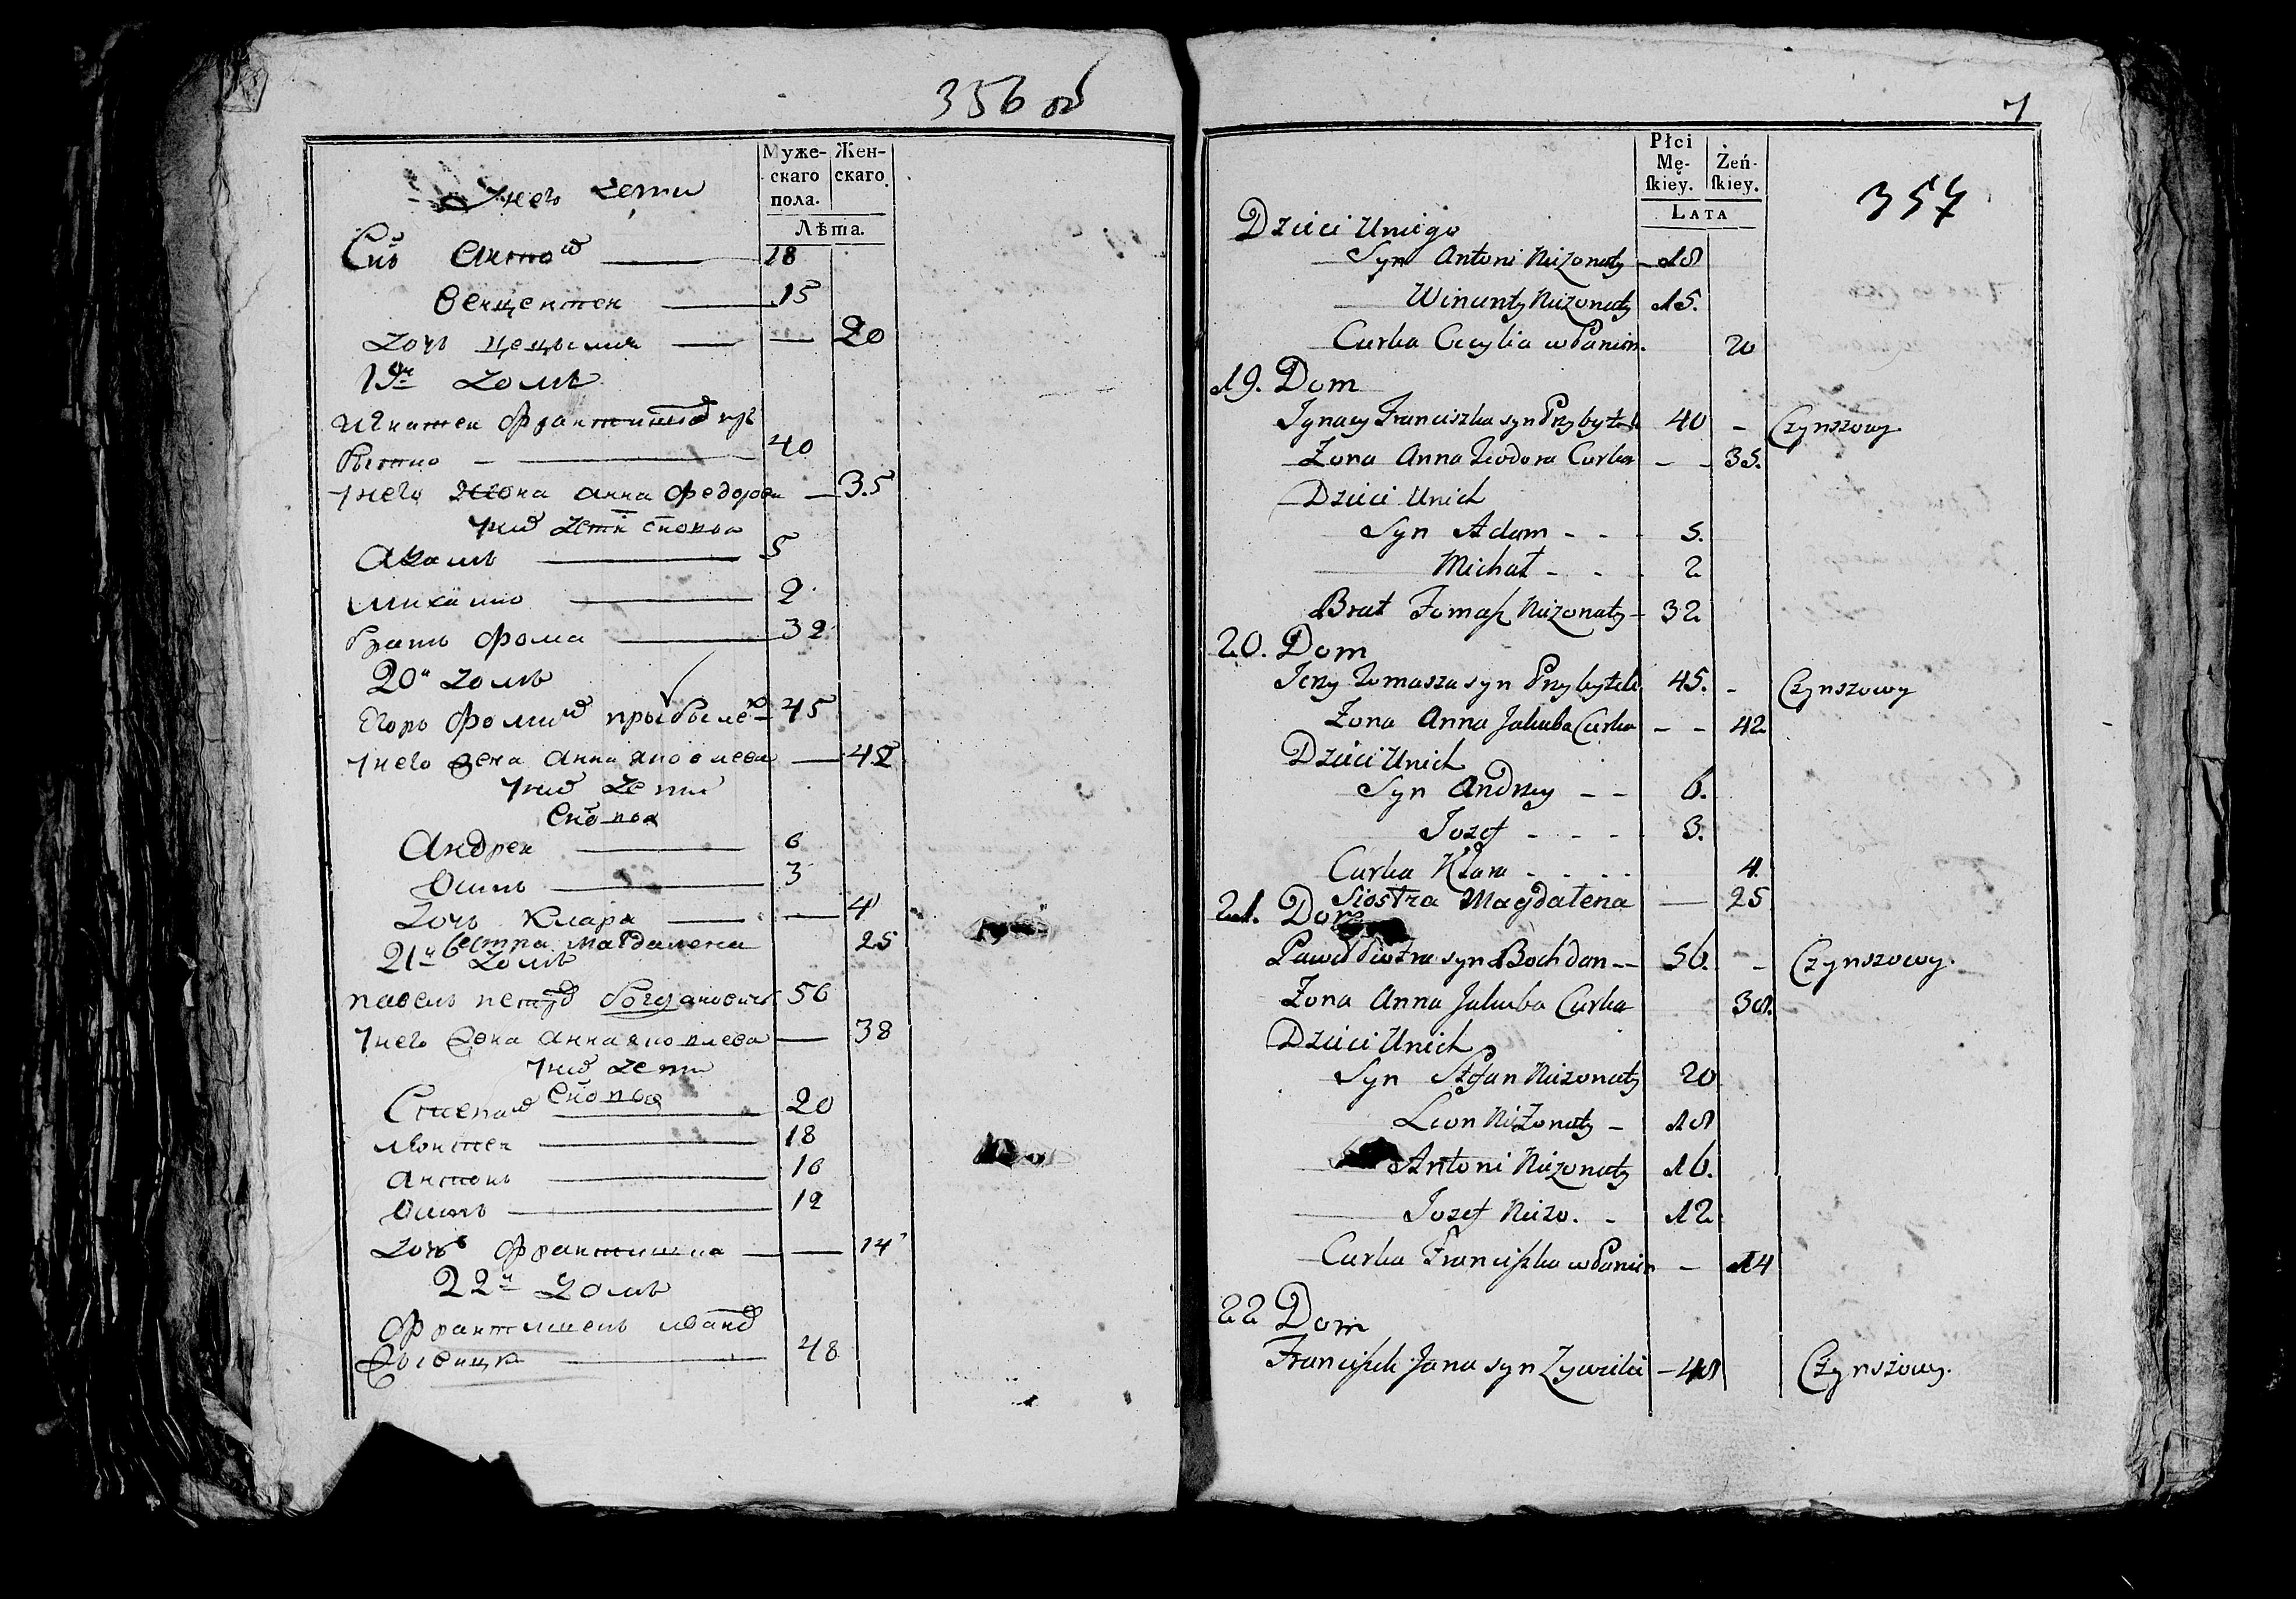 356 об
Муже-
скаго
пола.
Жен-
скаго
Лѣта.
У него дети
Снъ Антон 18
Венцентей 15
дочь цецылия 20
19й домъ
Игнатей Францишков при
бытко 40
у него жона Анна Федорова 35
у них дети снова
Адамъ 5
Михайло 2
братъ Фома 32
20й домъ
Егоръ Фомин прыбылек 45
у него жена Анна Яковлева 42
у них дети
снова
Андрей 6
Осипъ 3
дочь Клара 4
сестра Магдалена 25
21й домъ
павелъ петров Богданович 56
у него жена Анна яковлева 38
у них дети
снова
Степан 20
леонтей 18
антонъ 16
Осипъ 12
дочь Францишка 14
22й домъ
Францишекъ иванов
48
7
Płci
Mę-
ſkiey.
Żeń-
ſkiey.
Lata
357
Dzieci Uniego
Syn Antoni Niezonaty 18
Wincenty Niezonaty 15.
Curka Cecylia w Panien. 20
19. Dom
Ignacy Franciszka syn Przybytek 40 - Czynszowy.
Zona Anna Teodora Curka - - 35.
Dzieci Unich
Syn Adam - - 5.
Michał - - - 2
Brat Tomaſz Niezonaty - 32
20. Dom
Jerzy Tomasza syn Przybytek 45. - Czynszowy
Zona Anna Jakuba Curka - - 42
Dzieci Unich
Syn Andrzey - - 6.
Jozef - - - - 3.
Curka Klara - - - - 4.
Siostra Magdalena — 25
21. Dom
Paweł Piotra syn Bochdan — 56. - Czynszowy.
Zona Anna Jakuba Curka 38.
Dzieci Unich
Syn Stefan Niezonaty 20
Leon Niezonaty - 18
Antoni Niezonaty 16.
Jozef Niezo. - 12
Curka Franciſzka w Panien - 14
22 Dom
Franciſzek Jana syn Zywicki - 48 Czynszowy.